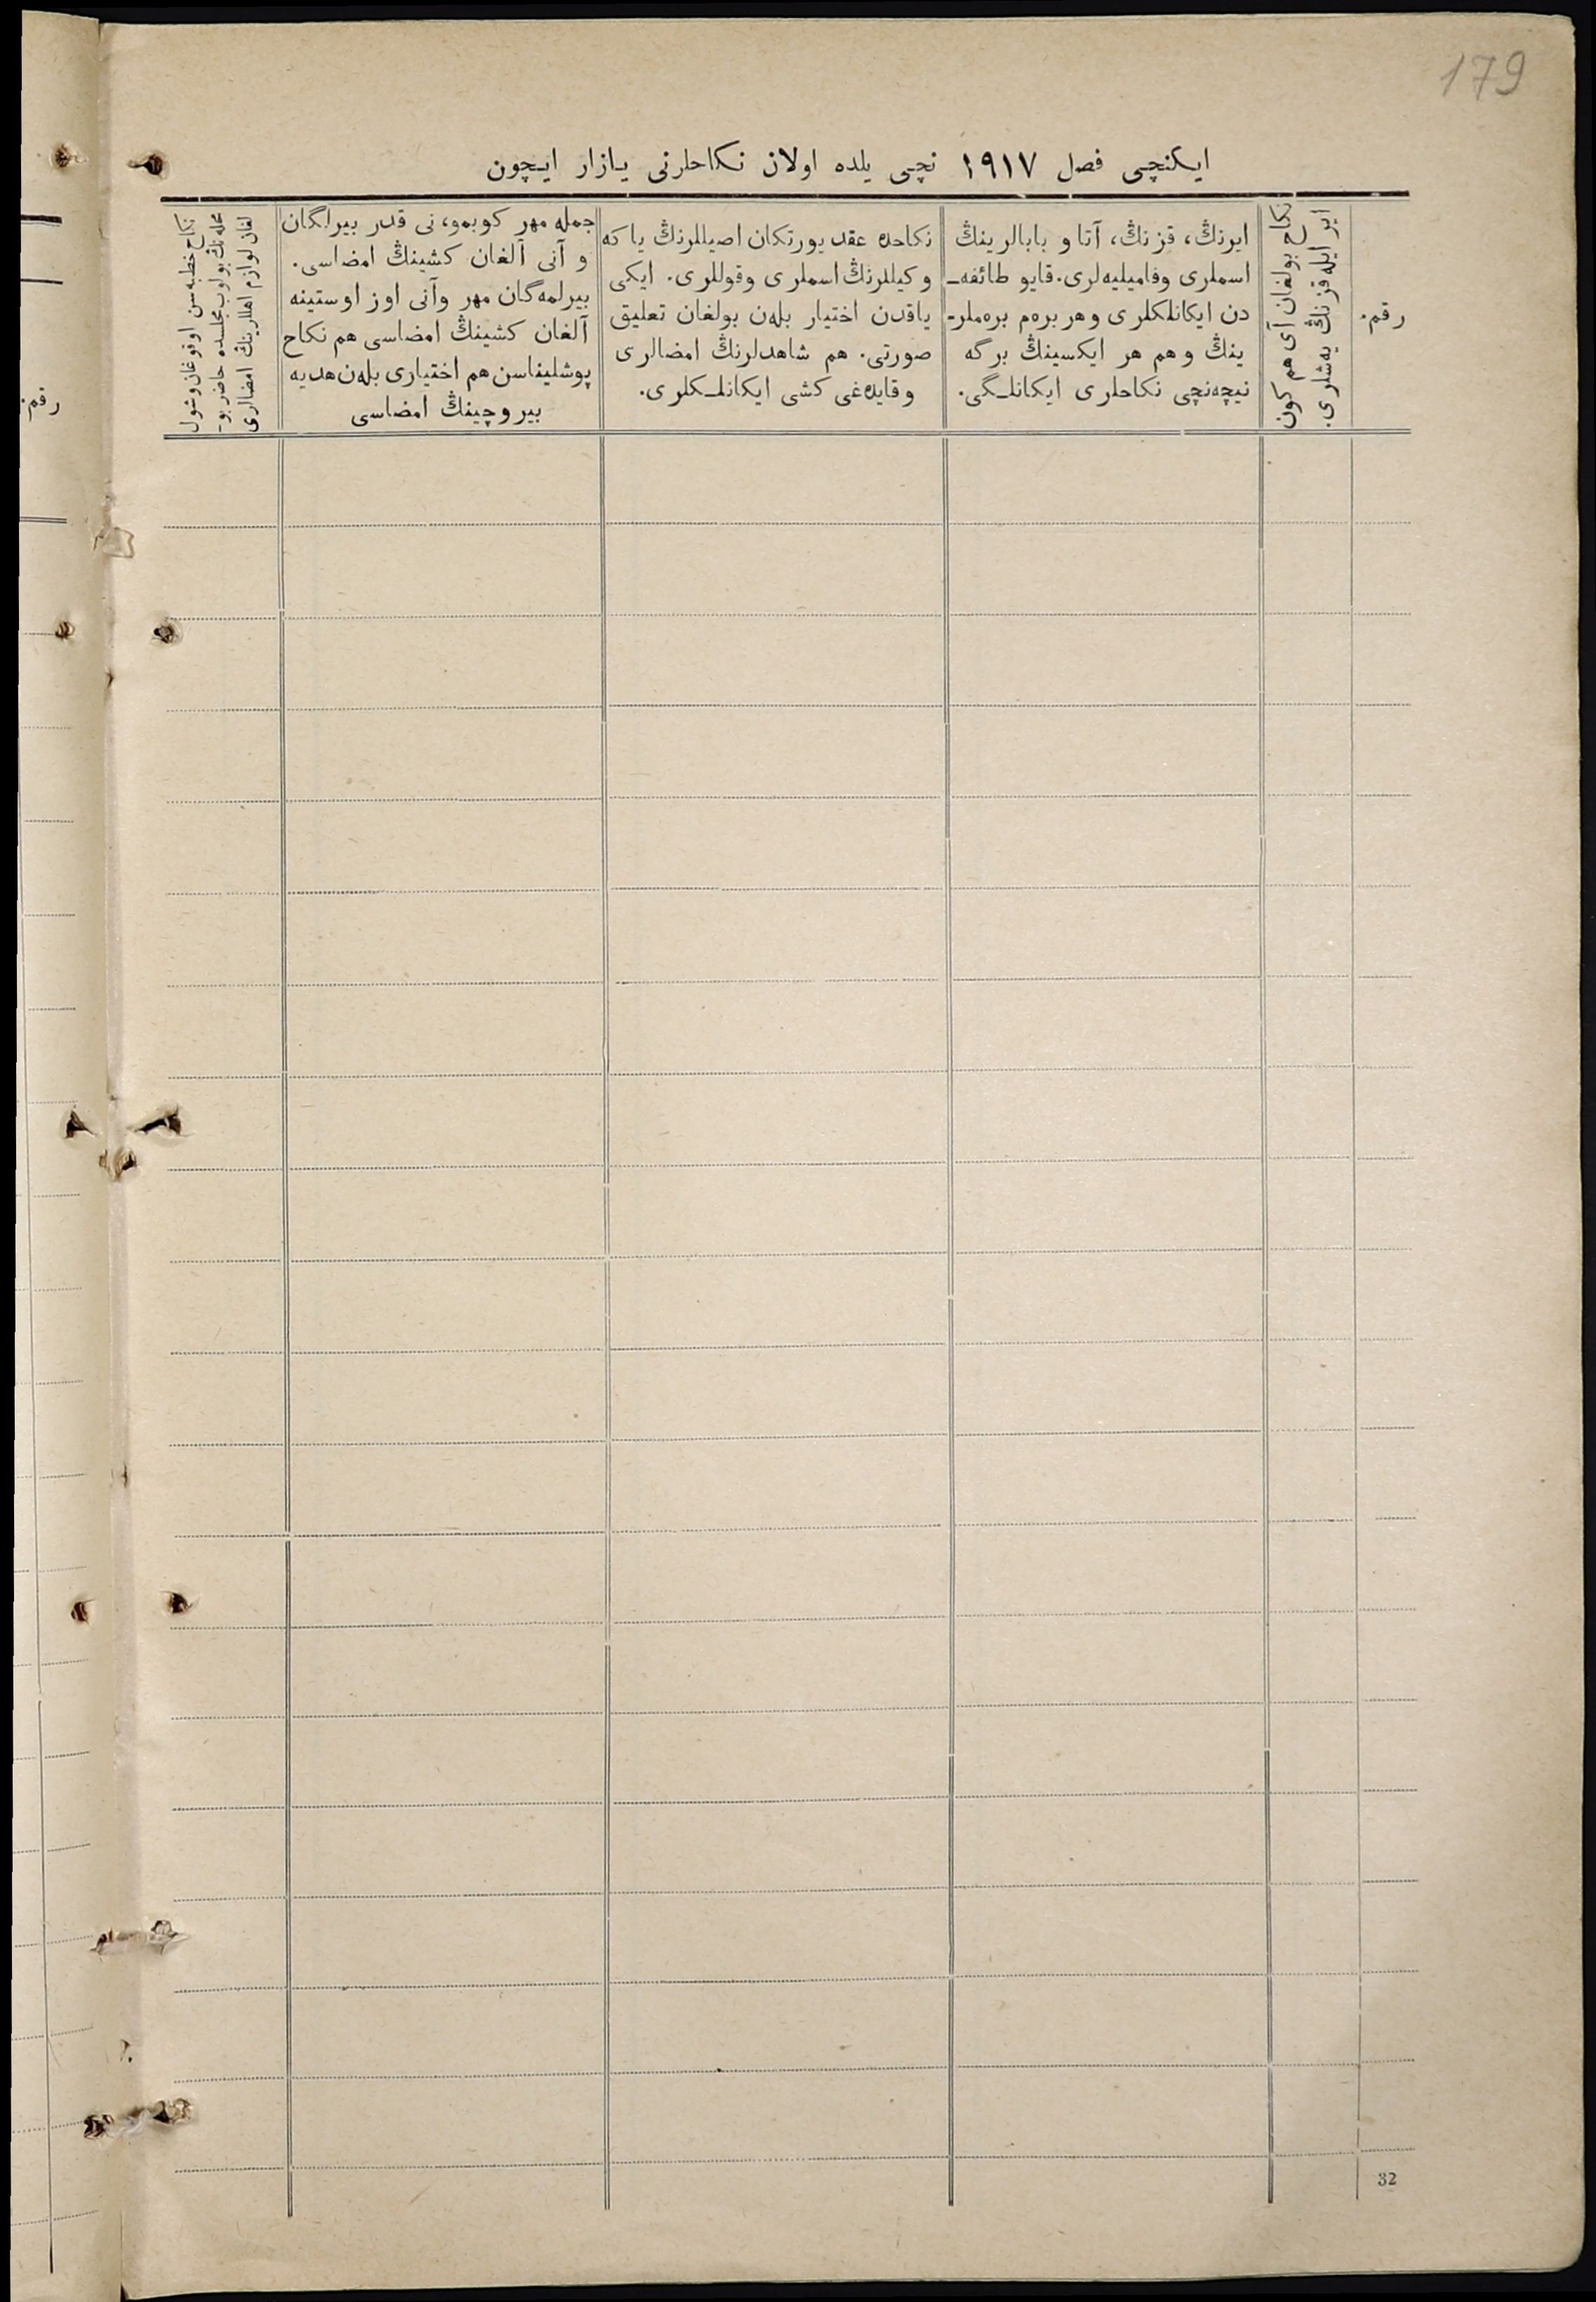 179
ایکنچی فصل ١٩١٧ نچی یلده اولان نکاحلرنی یازار ایچون
رقم.
نکاح بولغان آی هم کون
ایر ایله قزنڭ یه‌شلری.
ایرنڭ، قزنڭ، آتا و بابالرینڭ
اسملری وفامیلیه‌لری. قایو طائفه‌ـ
دن ایکانلکلری وهر بره‌م بره‌ملر-
ینڭ وهم هر ایکسینڭ برگه
نیچه‌نچی نکاحلری ایکانلـگی.
نکاحده عقد یورتکان اصیللرنڭ یاکه
وکیللرنڭ اسملری وقوللری. ایکی
یاقدن اختیار بله‌ن بولغان تعلیق
صورتی. هم شاهدلرنڭ امضالری
وقایده‌غی کشی ایکانلـکلری.
جمله مهر کوبمو، نی قدر بیرلگان
و آنی آلغان کشینڭ امضاسی.
بیرلمه‌گان مهر وآنی اوز اوستینه
آلغان کشینڭ امضاسی هم نکاح
پوشلیناسن هم اختیاری بله‌ن هدیه
بیروچینڭ امضاسی
نکاح خطبه‌سن اوقوغان وشول
محله‌نڭ بولوب مجلسده حاضر بو-
لغان لوازم اهللرینڭ امضالری
رقم.
32